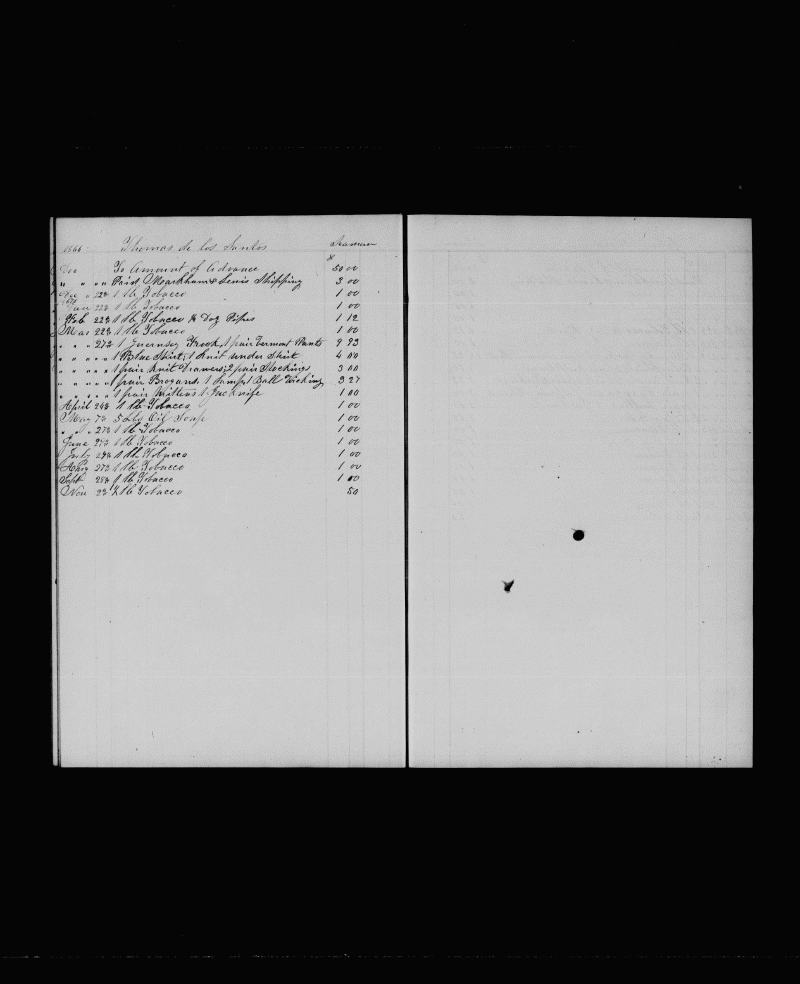 1866 Thomas de los Santos Seaman
$
Dec To Amount of Advance 50 00
" " " " Paid Markham & Lewis Shipping 3 00
" 22d 1 lb Tobacco 1 00
Jan 22d 1 lb Tobacco 1 00
Feb 22d 1 lb Tobacco ½ Doz Pipes 1 12
Mar 22d 1 lb Tobacco 1 00
" " " 27d 1 Guernsey Frock, 1 pair Vermont Pants 9 93
" " " " " 1 Blue Shirt, 1 Knit under Shirt 4 00
" " " " " 1 pair Knit Drawers, 2 pair Stockings 3 00
" " " " " 1 pair Brogans, 1 Lamp, 1 Ball Wicking 3 27
" " " " " 1 pair Mittens 1 Jacknife 1 00
April 24d 1 lb Tobacco 1 00
May 7d 5 Lbs Oil Soap 1 00
" " " 27d 1 lb Tobacco 1 00
June 27d 1 lb Tobacco 1 00
July 1 lb Tobacco 1 00
Aug 27d 1 lb Tobacco 1 00
Sept 28d 1 lb Tobacco 1 00
Nov 2d ½ lb Tobacco 50